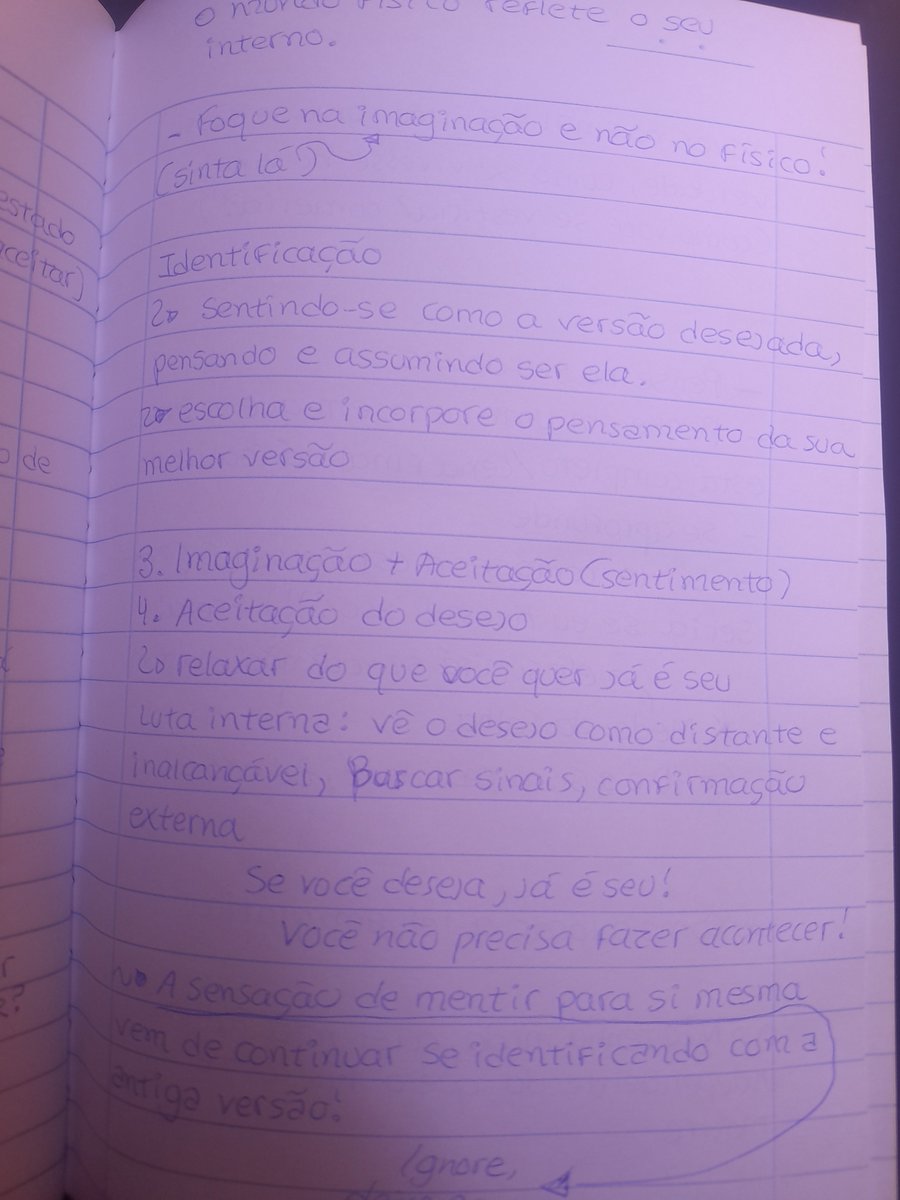 estado
aceitar)
o de
r
?
O mundo físico reflete o seu
interno.
- Foque na imaginação e não no físico!
(sinta lá)
Identificação
↳ Sentindo-se como a versão desejada,
pensando e assumindo ser ela.
↳ escolha e incorpore o pensamento da sua
melhor versão
3. Imaginação + Aceitação (sentimento)
4. Aceitação do desejo
↳ relaxar do que você quer já é seu
Luta interna: vê o desejo como distante e
inalcançável, Buscar sinais, confirmação
externa
Se você deseja, já é seu!
Você não precisa fazer acontecer!
↳ A sensação de mentir para si mesma
vem de continuar se identificando com a
antiga versão!
Ignore,